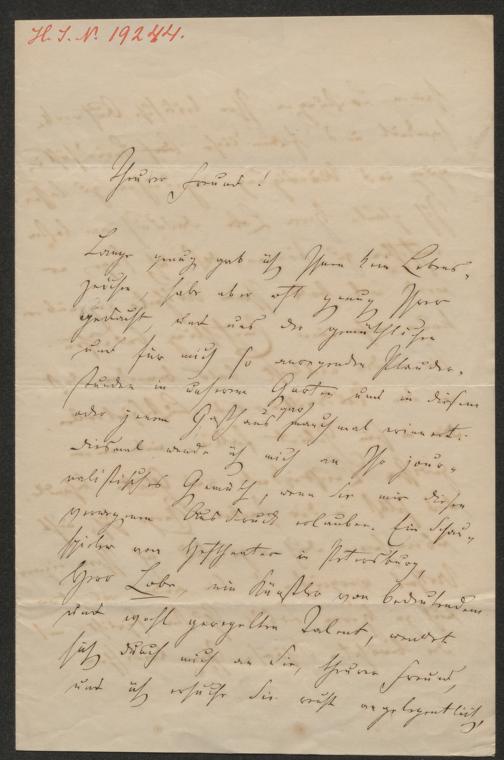 H. I. N. 19244.
Theurer Freund!
Lange genug gab ich Ihnen kein Lebens-
zeichen, habe aber oft genug Ihrer
gedacht und uns der gemüthlichen
und für mich so anregenden Plauder-
stunden in unserem Garten und in diesem
oder jenem Gasthaus gar manchmal erinnert.
Diesmal wende ich mich an Ihr jour-
nalistisches Gemüth, wenn Sie mir diesen
verwegenen Ausdruck erlauben. Ein Schau-
spieler vom Hoftheater in Petersburg,
Herr Lobe, ein Künstler von bedeutendem
und wohl geregelten Talent, wendet
sich durch mich an Sie, theurer Freund,
und ich ersuche Sie recht angelegentlich,